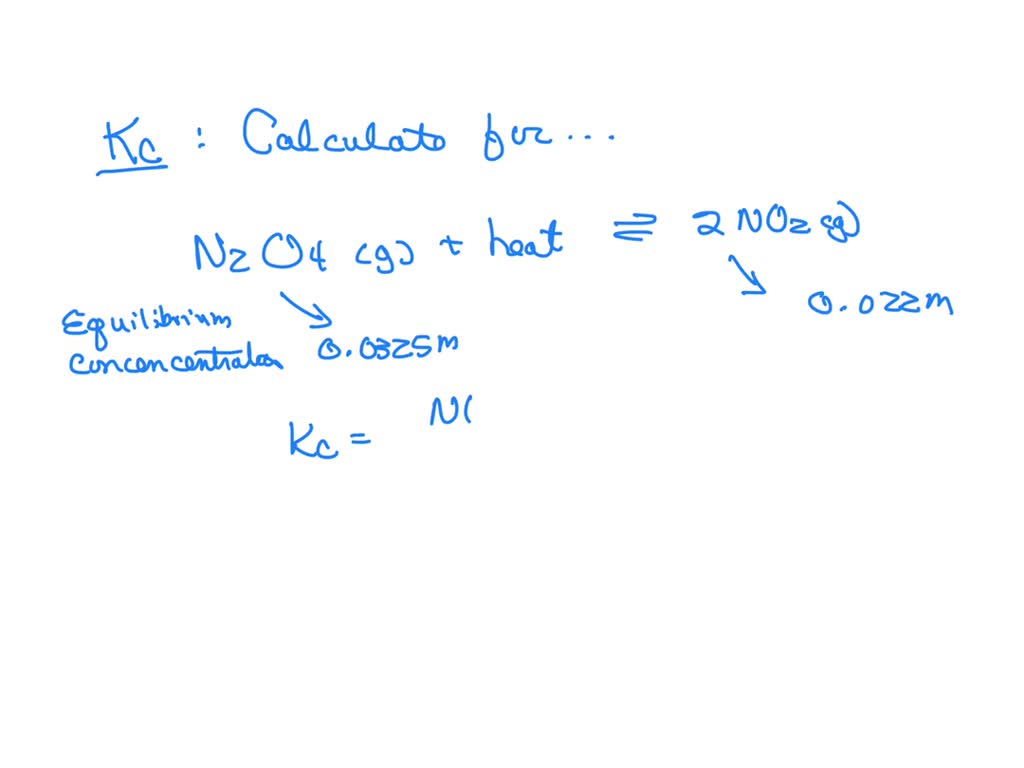 Kc : Calculate for ...
N2O4 (g) + heat ⇌ 2 NO2 (g)
Equilibrium concentration 0.0325 M 0.022 M
Kc = N(